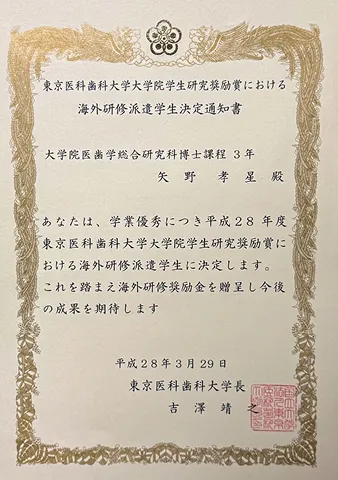 東京医科歯科大学大学院学生研究奨励賞における
海外研修派遣学生決定通知書
大学院医歯学総合研究科博士課程 3年
矢野 孝星 殿
あなたは、学業優秀につき平成28年度
東京医科歯科大学大学院学生研究奨励賞に
おける海外研修派遣学生に決定します。
これを踏まえ海外研修奨励金を贈呈し今後
の成果を期待します
平成28年3月29日
東京医科歯科大学長
吉澤 靖之